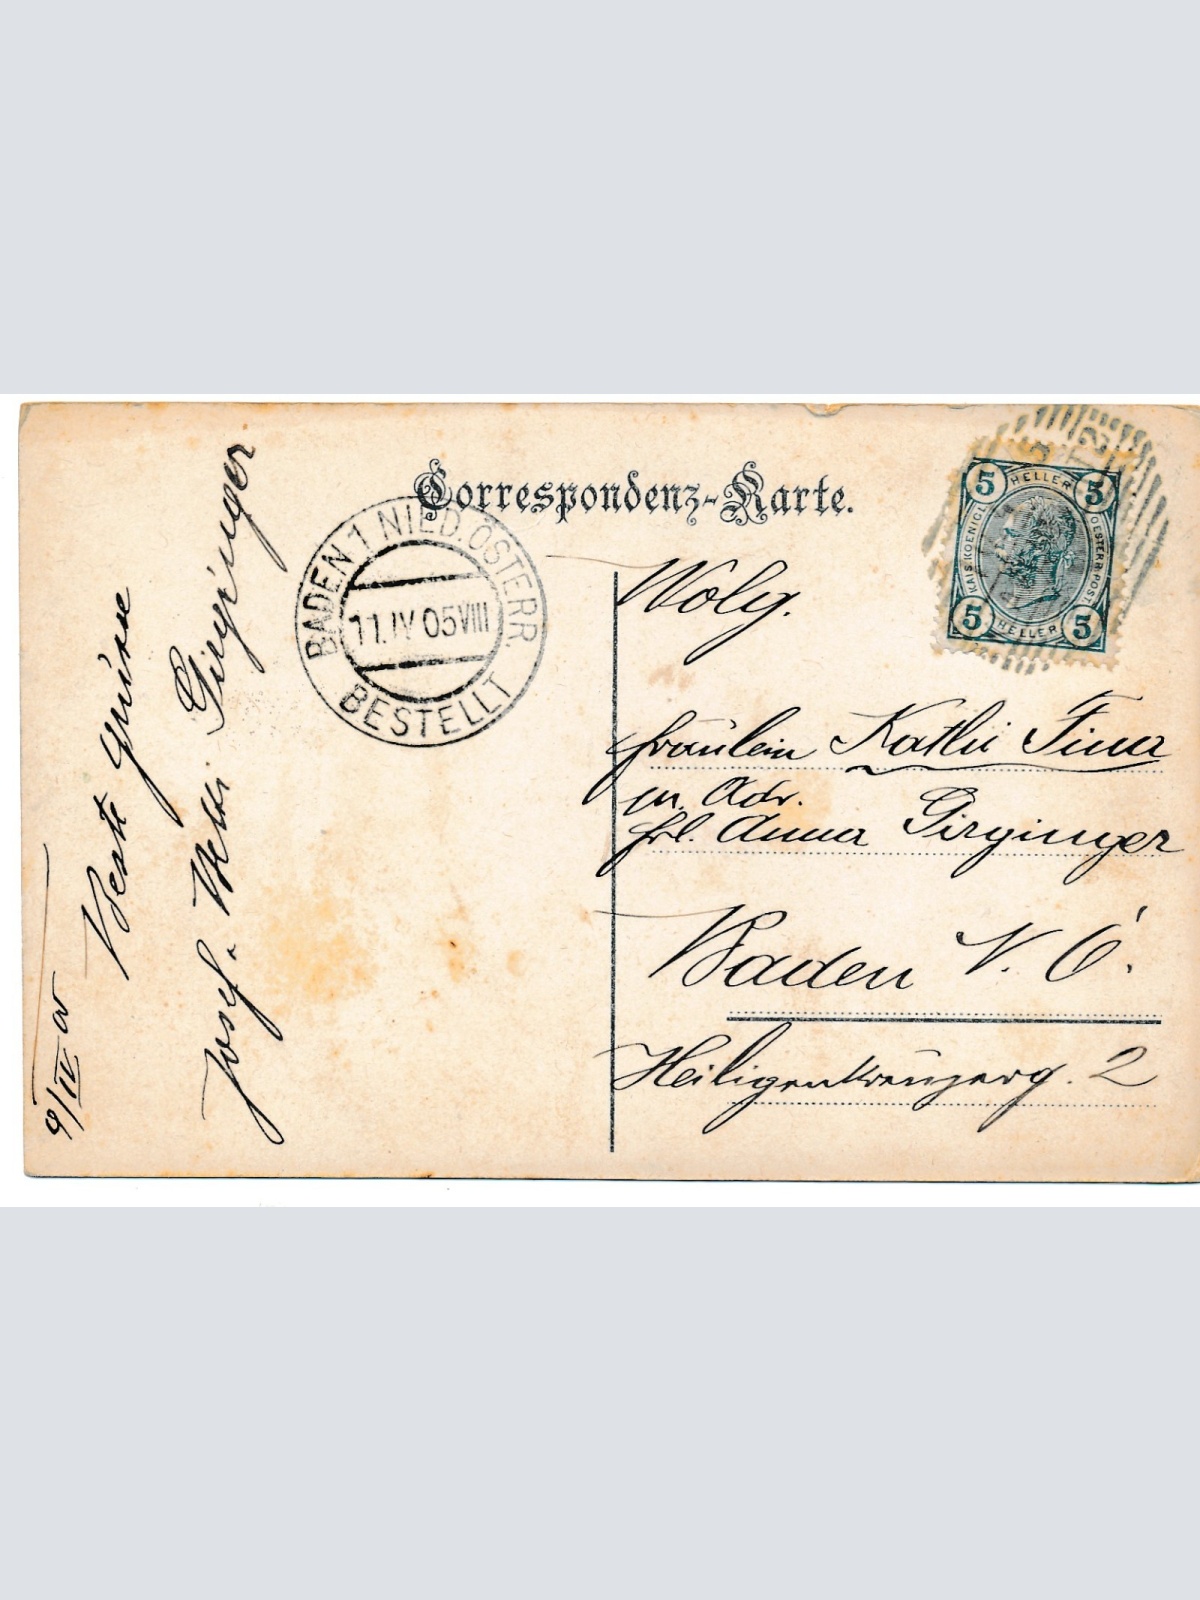 Correspondenz-Karte.
BADEN 1 NIED. ÖSTERR.
11.IV 05 VIII
BESTELLT
5 HELLER 5
KAIS. KOENIGL.
OESTERR. POST.
5 HELLER 5
Wolg.
Fräulein Kathi Fina
pr. Adr.
Frl. Anna Girginger
Baden N. Ö.
Heiligenkreuzerg. 2
9/IV
Beste Grüsse
Josef. Girginger